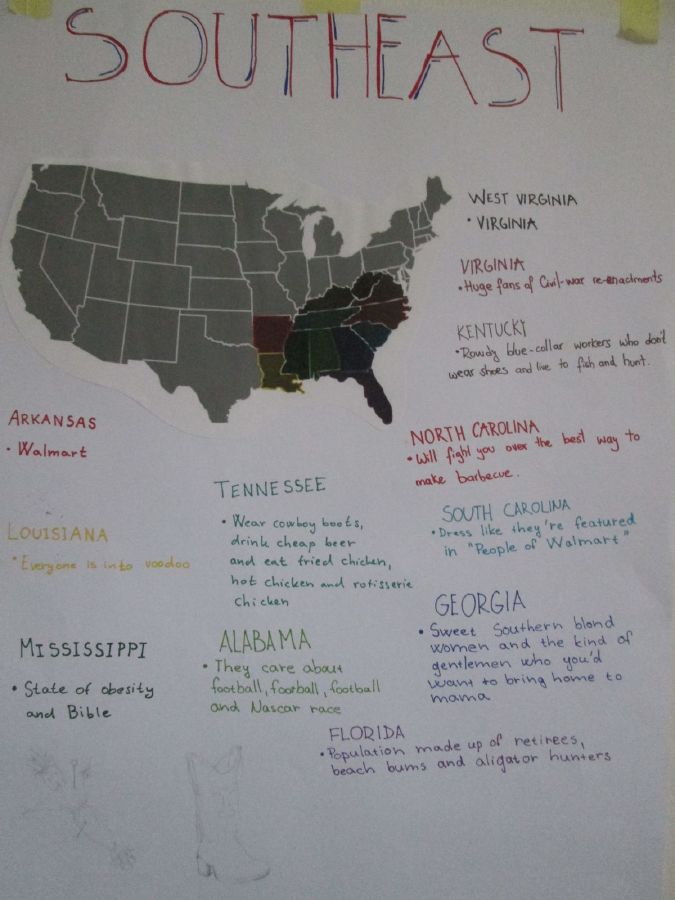 SOUTHEAST
WEST VIRGINIA
• VIRGINIA
VIRGINIA
• Huge fans of Civil-war re-enactments
KENTUCKY
• Rowdy blue-collar workers who don't
wear shoes and live to fish and hunt.
ARKANSAS
• Walmart
NORTH CAROLINA
• Will fight you over the best way to
make barbecue.
TENNESSEE
• Wear cowboy boots,
drink cheap beer
and eat fried chicken,
hot chicken and rotisserie
chicken
SOUTH CAROLINA
• Dress like they're featured
in "People of Walmart"
LOUISIANA
• Everyone is into voodoo
GEORGIA
• Sweet Southern blond
women and the kind of
gentlemen who you'd
want to bring home to
mama
MISSISSIPPI
• State of obesity
and Bible
ALABAMA
• They care about
football, football, football
and Nascar race
FLORIDA
• Population made up of retirees,
beach bums and aligator hunters